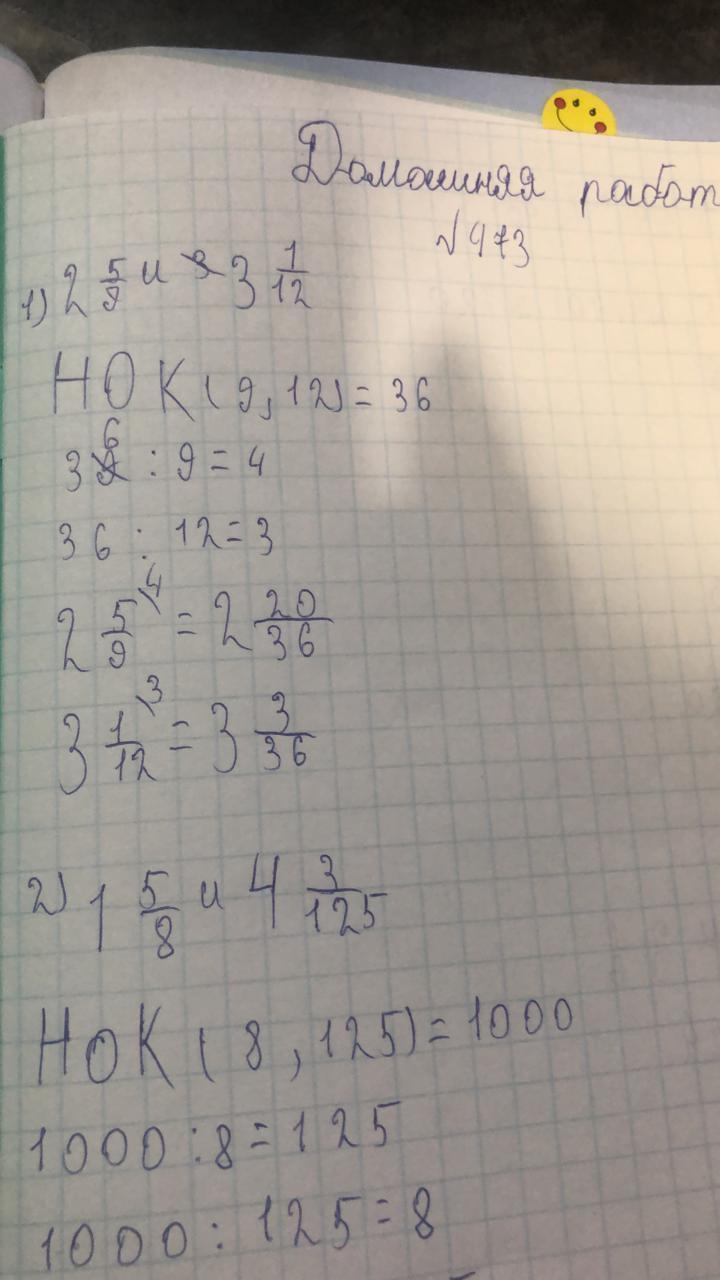 Домашняя работ
№973
1) 2 5/9 и 3 1/12
НОК (9, 12) = 36
36 : 9 = 4
36 : 12 = 3
2 5/9 \4 = 2 20/36
3 1/12 \3 = 3 3/36
2) 1 5/8 и 4 3/125
НОК (8, 125) = 1000
1000 : 8 = 125
1000 : 125 = 8